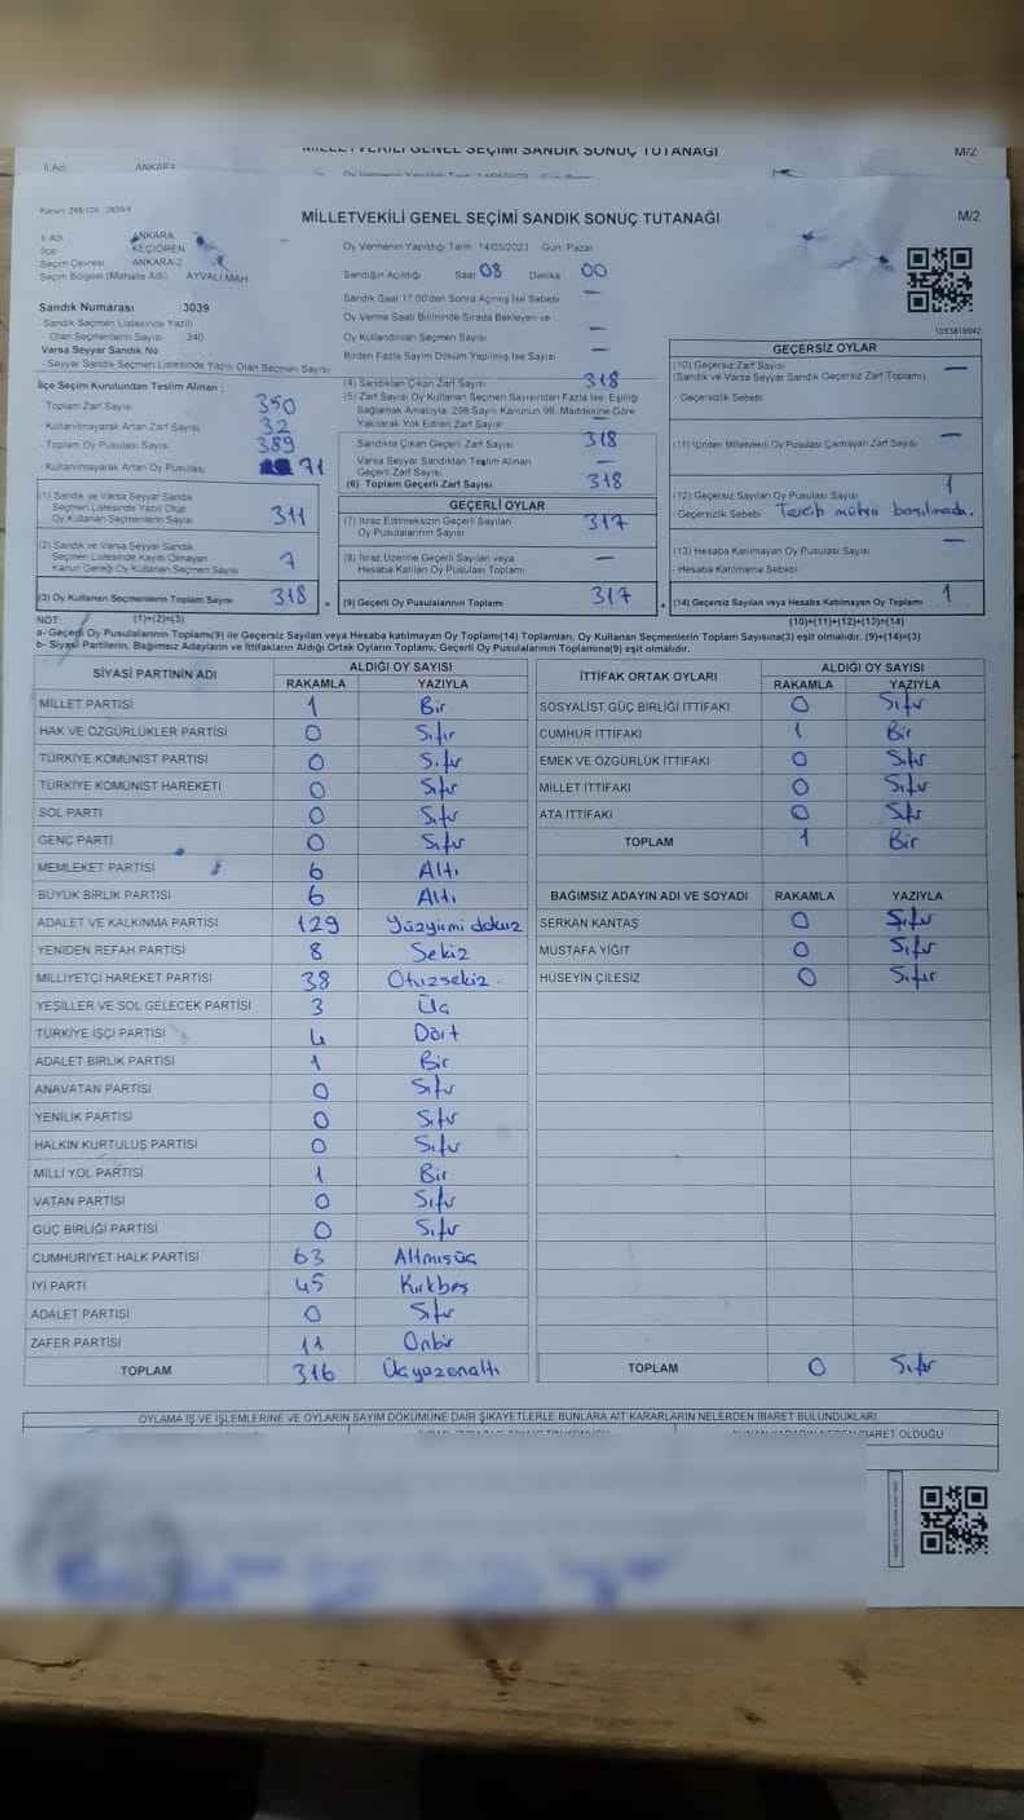 MİLLETVEKİLİ GENEL SEÇİMİ SANDIK SONUÇ TUTANAĞI M/2
İl Adı ANKARA
MİLLETVEKİLİ GENEL SEÇİMİ SANDIK SONUÇ TUTANAĞI M/2
İl Adı ANKARA
İlçe KEÇİÖREN
Seçim Çevresi ANKARA-2
Seçim Bölgesi (Mahalle Adı) AYVALI MAH
Oy Vermenin Yapıldığı Tarih 14/05/2023 Gün Pazar
Sandığın Açıldığı Saat 08 Dakika 00
Sandık Saat 17:00'den Sonra Açılmış İse Sebebi —
Oy Verme Saati Bitiminde Sırada Bekleyen ve
Oy Kullandırılan Seçmen Sayısı —
Birden Fazla Sayım Döküm Yapılmış İse Sayısı —
Sandık Numarası 3039
Sandık Seçmen Listesinde Yazılı
Olan Seçmenlerin Sayısı 340
Varsa Seyyar Sandık No
Seyyar Sandık Seçmen Listesinde Yazılı Olan Seçmen Sayısı
İlçe Seçim Kurulundan Teslim Alınan :
Toplam Zarf Sayısı 350
Kullanılmayarak Artan Zarf Sayısı 32
Toplam Oy Pusulası Sayısı 389
Kullanılmayarak Artan Oy Pusulası 71
(1) Sandık ve Varsa Seyyar Sandık
Seçmen Listesinde Yazılı Olup
Oy Kullanan Seçmenlerin Sayısı 311
(2) Sandık ve Varsa Seyyar Sandık
Seçmen Listesinde Kaydı Olmayan
Kanun Gereği Oy Kullanan Seçmen Sayısı 7
(3) Oy Kullanan Seçmenlerin Toplam Sayısı 318
(1)+(2)=(3)
(4) Sandıktan Çıkan Zarf Sayısı 318
(5) Zarf Sayısı Oy Kullanan Seçmen Sayısından Fazla İse, Eşitliği
Sağlamak Amacıyla, 298 Sayılı Kanunun 98. Maddesine Göre
Yakılarak Yok Edilen Zarf Sayısı —
Sandıkta Çıkan Geçerli Zarf Sayısı 318
Varsa Seyyar Sandıktan Teslim Alınan
Geçerli Zarf Sayısı —
(6) Toplam Geçerli Zarf Sayısı 318
GEÇERLİ OYLAR
(7) İtiraz Edilmeksizin Geçerli Sayılan
Oy Pusulalarının Sayısı 317
(8) İtiraz Üzerine Geçerli Sayılan veya
Hesaba Katılan Oy Pusulası Toplamı —
(9) Geçerli Oy Pusulalarının Toplamı 317
GEÇERSİZ OYLAR
(10) Geçersiz Zarf Sayısı —
(Sandık ve Varsa Seyyar Sandık Geçersiz Zarf Toplamı)
Geçersizlik Sebebi
(11) İçinden Milletvekili Oy Pusulası Çıkmayan Zarf Sayısı —
(12) Geçersiz Sayılan Oy Pusulası Sayısı 1
Geçersizlik Sebebi Tercih mührü basılmadı.
(13) Hesaba Katılmayan Oy Pusulası Sayısı —
Hesaba Katılmama Sebebi
(14) Geçersiz Sayılan veya Hesaba Katılmayan Oy Toplamı 1
(10)+(11)+(12)+(13)=(14)
NOT:
a- Geçerli Oy Pusulalarının Toplamı(9) ile Geçersiz Sayılan veya Hesaba Katılmayan Oy Toplamı(14) Toplamları, Oy Kullanan Seçmenlerin Toplam Sayısına(3) eşit olmalıdır. (9)+(14)=(3)
b- Siyasi Partilerin, Bağımsız Adayların ve İttifakların Aldığı Ortak Oyların Toplamı, Geçerli Oy Pusulalarının Toplamına(9) eşit olmalıdır.
SİYASİ PARTİNİN ADI ALDIĞI OY SAYISI
RAKAMLA YAZIYLA
MİLLET PARTİSİ 1 Bir
HAK VE ÖZGÜRLÜKLER PARTİSİ 0 Sıfır
TÜRKİYE KOMÜNİST PARTİSİ 0 Sıfır
TÜRKİYE KOMÜNİST HAREKETİ 0 Sıfır
SOL PARTİ 0 Sıfır
GENÇ PARTİ 0 Sıfır
MEMLEKET PARTİSİ 6 Altı
BÜYÜK BİRLİK PARTİSİ 6 Altı
ADALET VE KALKINMA PARTİSİ 129 Yüzyirmi dokuz
YENİDEN REFAH PARTİSİ 8 Sekiz
MİLLİYETÇİ HAREKET PARTİSİ 38 Otuzsekiz
YEŞİLLER VE SOL GELECEK PARTİSİ 3 Üç
TÜRKİYE İŞÇİ PARTİSİ 4 Dört
ADALET BİRLİK PARTİSİ 1 Bir
ANAVATAN PARTİSİ 0 Sıfır
YENİLİK PARTİSİ 0 Sıfır
HALKIN KURTULUŞ PARTİSİ 0 Sıfır
MİLLİ YOL PARTİSİ 1 Bir
VATAN PARTİSİ 0 Sıfır
GÜÇ BİRLİĞİ PARTİSİ 0 Sıfır
CUMHURİYET HALK PARTİSİ 63 Altmışüç
İYİ PARTİ 45 Kırkbeş
ADALET PARTİSİ 0 Sıfır
ZAFER PARTİSİ 11 Onbir
TOPLAM 316 Üçyüzonaltı
İTTİFAK ORTAK OYLARI ALDIĞI OY SAYISI
RAKAMLA YAZIYLA
SOSYALİST GÜÇ BİRLİĞİ İTTİFAKI 0 Sıfır
CUMHUR İTTİFAKI 1 Bir
EMEK VE ÖZGÜRLÜK İTTİFAKI 0 Sıfır
MİLLET İTTİFAKI 0 Sıfır
ATA İTTİFAKI 0 Sıfır
TOPLAM 1 Bir
BAĞIMSIZ ADAYIN ADI VE SOYADI RAKAMLA YAZIYLA
SERKAN KANTAŞ 0 Sıfır
MUSTAFA YİĞİT 0 Sıfır
HÜSEYİN ÇİLESİZ 0 Sıfır
TOPLAM 0 Sıfır
OYLAMA İŞ VE İŞLEMLERİNE VE OYLARIN SAYIM DÖKÜMÜNE DAİR ŞİKAYETLERLE BUNLARA AİT KARARLARIN NELERDEN İBARET BULUNDUKLARI
OLDUĞU